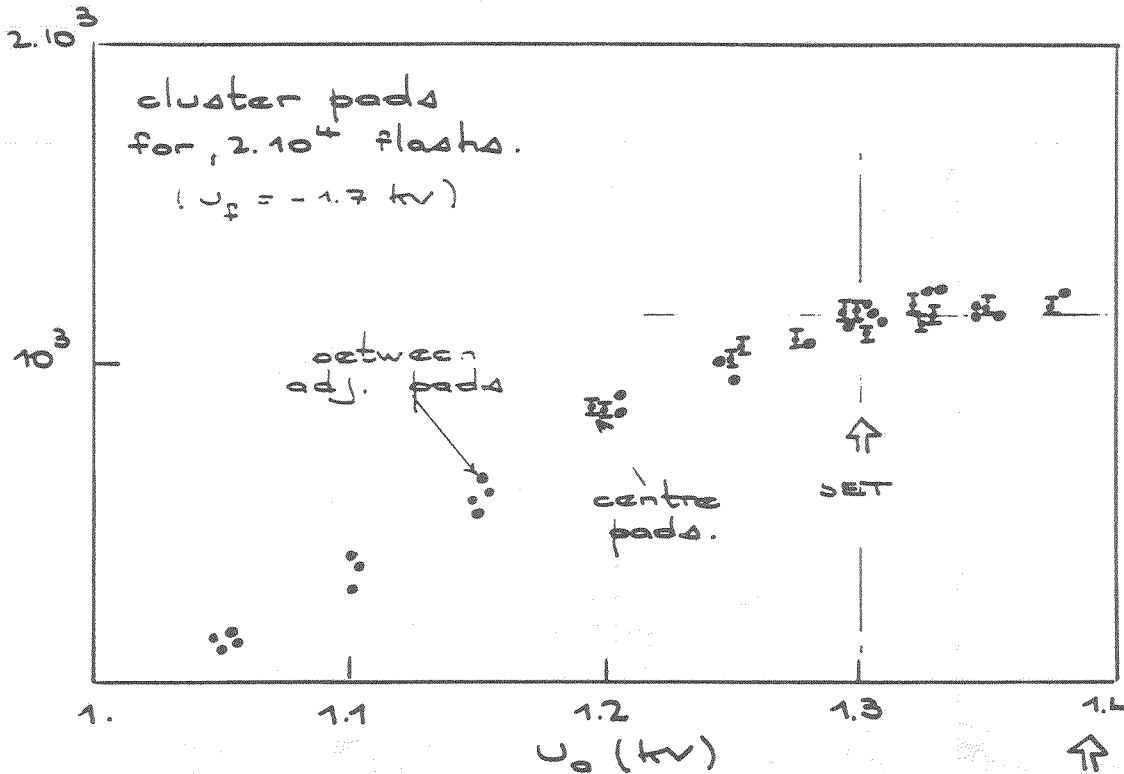 2.10³
cluster pads
for, 2.10⁴ flashs.
(U_f = -1.7 kV)
10³
between
adj. pads
centre
pads.
SET
1.
1.1
1.2
1.3
1.4
U_a (kV)